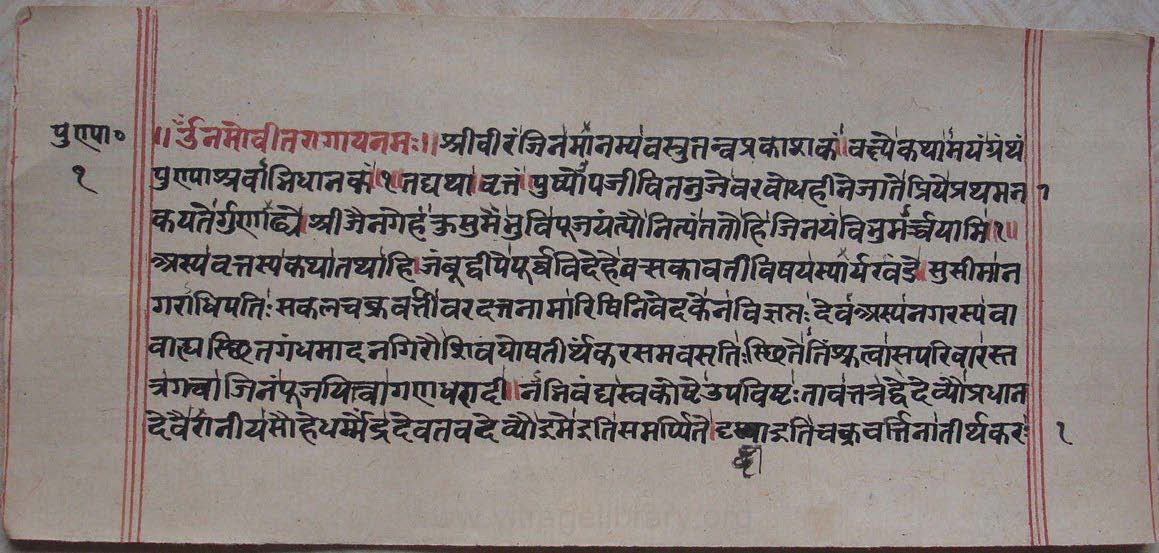 पुण्या०
१
॥ र्उंनमोवीतरागायनमः॥ श्रीवीरंजिनमानम्यवस्तुतत्वप्रकाशकं॥ वक्ष्येकथामयंग्रंथं
पुण्याश्रवाभिधानकं॥१॥ तद्यथा॥ वृत्तं॥ पुष्पोपजीवितनुजेवरबोधहीनेजातेप्रियेप्रथमन १
कपतेर्गुणाढ्ये॥ श्रीजैनगेहकुसुमैर्भुविपूजयंत्यौनित्यंततोहिजिनयंविभुमर्च्चयामि॥१॥
अस्यवृत्तस्यकथातथाहि॥ जंबूद्वीपेपूर्व्वविदेहेवत्सकावतीविषयस्यार्यखंडे॥ सुसीमान
गराधिपतिःसकलचक्रवर्त्तीवरदत्तनामारिषिनिवेदकेनविज्ञप्तःदेवअस्यनगरस्यवा
वाह्यस्छितगंधमादनगिरौशिवघोषतीर्थंकरसमवसतिःस्छितेतिश्रुत्वासपरिवारस्त
त्रगत्वाजिनंपूजयित्वागणधरादी॥नभिवंद्यस्वकोष्टेउपविष्टःतावत्तत्रद्वेदेव्यौप्रधान
देवैरानीयसौहेधर्म्मेंद्रदेवतवदेव्यौइमेइतिसमर्प्पितेदृष्ट्वाइतिचक्रवर्त्तिनातीर्थकरः १
www.vitragelibrary.org